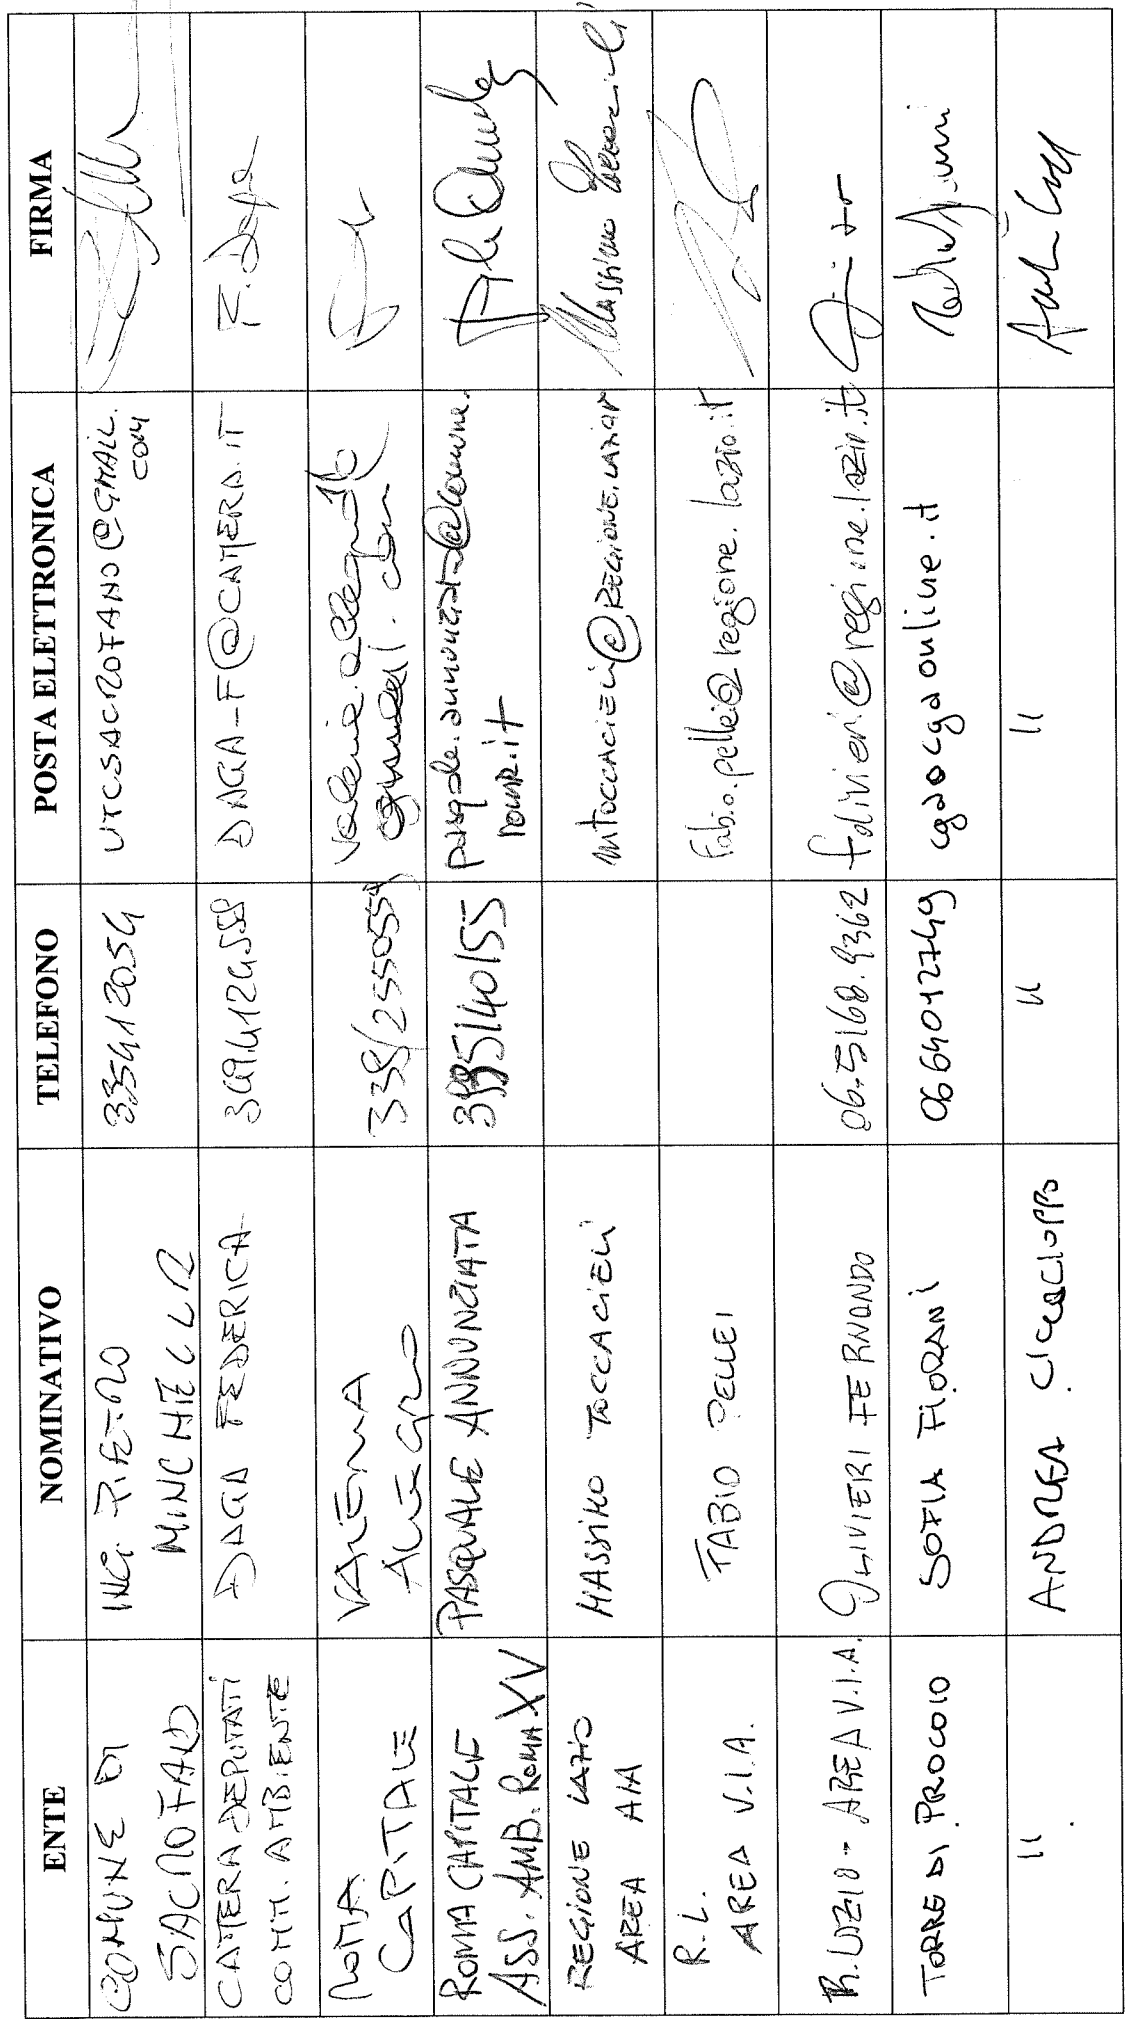 ENTE NOMINATIVO TELEFONO POSTA ELETTRONICA FIRMA
COMUNE DI
SACROFANO
ING. PIETRO
MINCHELLA
335412054
UTCSACROFANO@GMAIL.
COM
CAMERA DEPUTATI
COMM. AMBIENTE
DAGA FEDERICA
DAGA-F@CAMERA.IT
F. Daga
ROMA
CAPITALE
VALERIA
ALLEGRO
ROMA CAPITALE
ASS. AMB. ROMA XV
PASQUALE ANNUNZIATA
pasquale.annunziata@comune.
roma.it
REGIONE LAZIO
AREA AIA
MASSIMO TOCCACIELI
mtoccacieli@REGIONE.LAZIO.IT
Massimo Toccacieli
R.L.
AREA V.I.A.
FABIO PELLEI
fabio.pellei@regione.lazio.it
R. LAZIO - AREA V.I.A.
OLIVIERI FERNANDO
06.5168.9362
folivieri@regione.lazio.it
TORRE DI PROCOIO
SOFIA FIORANI
0664012749
cga@cgaonline.it
"
ANDREA CICCOLOPPO
"
"